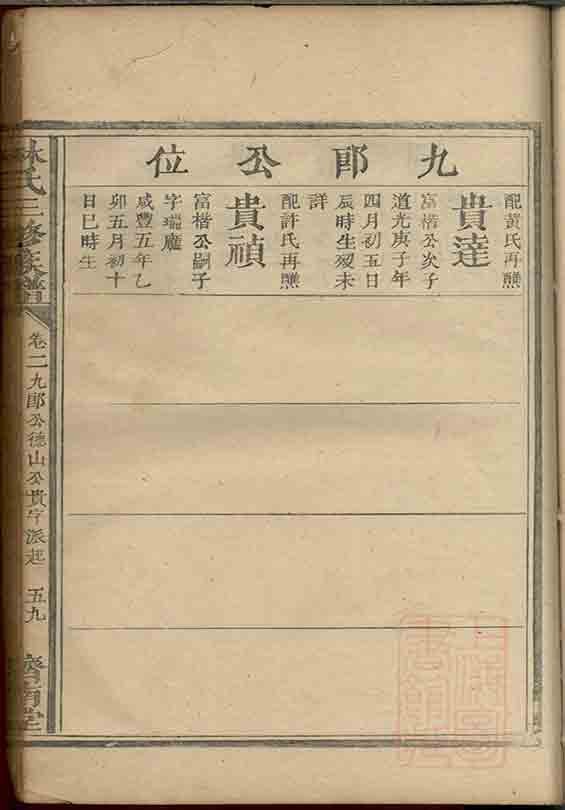 九郎公位
配黃氏再醮
貴達
富楷公次子
道光庚子年
四月初五日
辰時生歿未
詳
配許氏再醮
貴禎
富楷公嗣子
字瑞廎
咸豐五年乙
卯五月初十
日巳時生
林氏三修族譜
卷二九郎公德山公貴字派起
五九
濟南堂